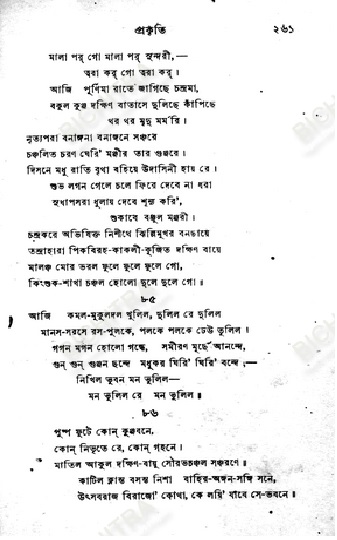 প্রকৃতি ২৬১
মালা পর্ গো মালা পর্ সুন্দরী,—
ত্বরা কর্ গো ত্বরা কর্।
আজি পূর্ণিমা রাতে জাগিছে চন্দ্রমা,
বকুল কুঞ্জ দক্ষিণ বাতাসে দুলিছে কাঁপিছে
থর থর মৃদু মর্মরি।
নৃত্যপরা বনাঙ্গনা বনাঙ্গনে সঞ্চরে
চঞ্চলিত চরণ ঘেরি' মঞ্জীর তার গুঞ্জরে।
দিসনে মধু রাতি বৃথা বহিয়ে উদাসিনী হায় রে।
শুভ লগন গেলে চলে ফিরে দেবে না ধরা
সুধাপসরা ধূলায় দেবে শূন্য করি',
শুকাবে বঞ্জুল মঞ্জরী।
চন্দ্রকরে অভিষিক্ত নিশীথে ঝিল্লিমুখর বনছায়ে
তন্দ্রাহারা পিকবিরহ-কাকলী-কূজিত দক্ষিণ বায়ে
মালঞ্চ মোর ভরল ফুলে ফুলে ফুলে গো,
কিংশুক-শাখা চঞ্চল হোলো দুলে দুলে গো।
৮৫
আজি কমল-মুকুলদল খুলিল, দুলিল রে দুলিল
মানস-সরসে রস-পুলকে, পলকে পলকে ঢেউ তুলিল।
গগন মগন হোলো গন্ধে, সমীরণ মূর্ছে আনন্দে,
গুন্ গুন্ গুঞ্জন ছন্দে মধুকর ঘিরি' ঘিরি' বন্দে,—
নিখিল ভুবন মন ভুলিল—
মন ভুলিল রে মন ভুলিল।
৮৬
পুষ্প ফুটে কোন্ কুঞ্জবনে,
কোন্ নিভৃতে রে, কোন্ গহনে।
মাতিল আকুল দক্ষিণ-বায়ু সৌরভচঞ্চল সঞ্চরণে।
কাটিল ক্লান্ত বসন্ত নিশা বাহির-অঙ্গন-সঙ্গি সনে,
উৎসবরাজ বিরাজে কোথা, কে লয়ি' যাবে সে-ভবনে।